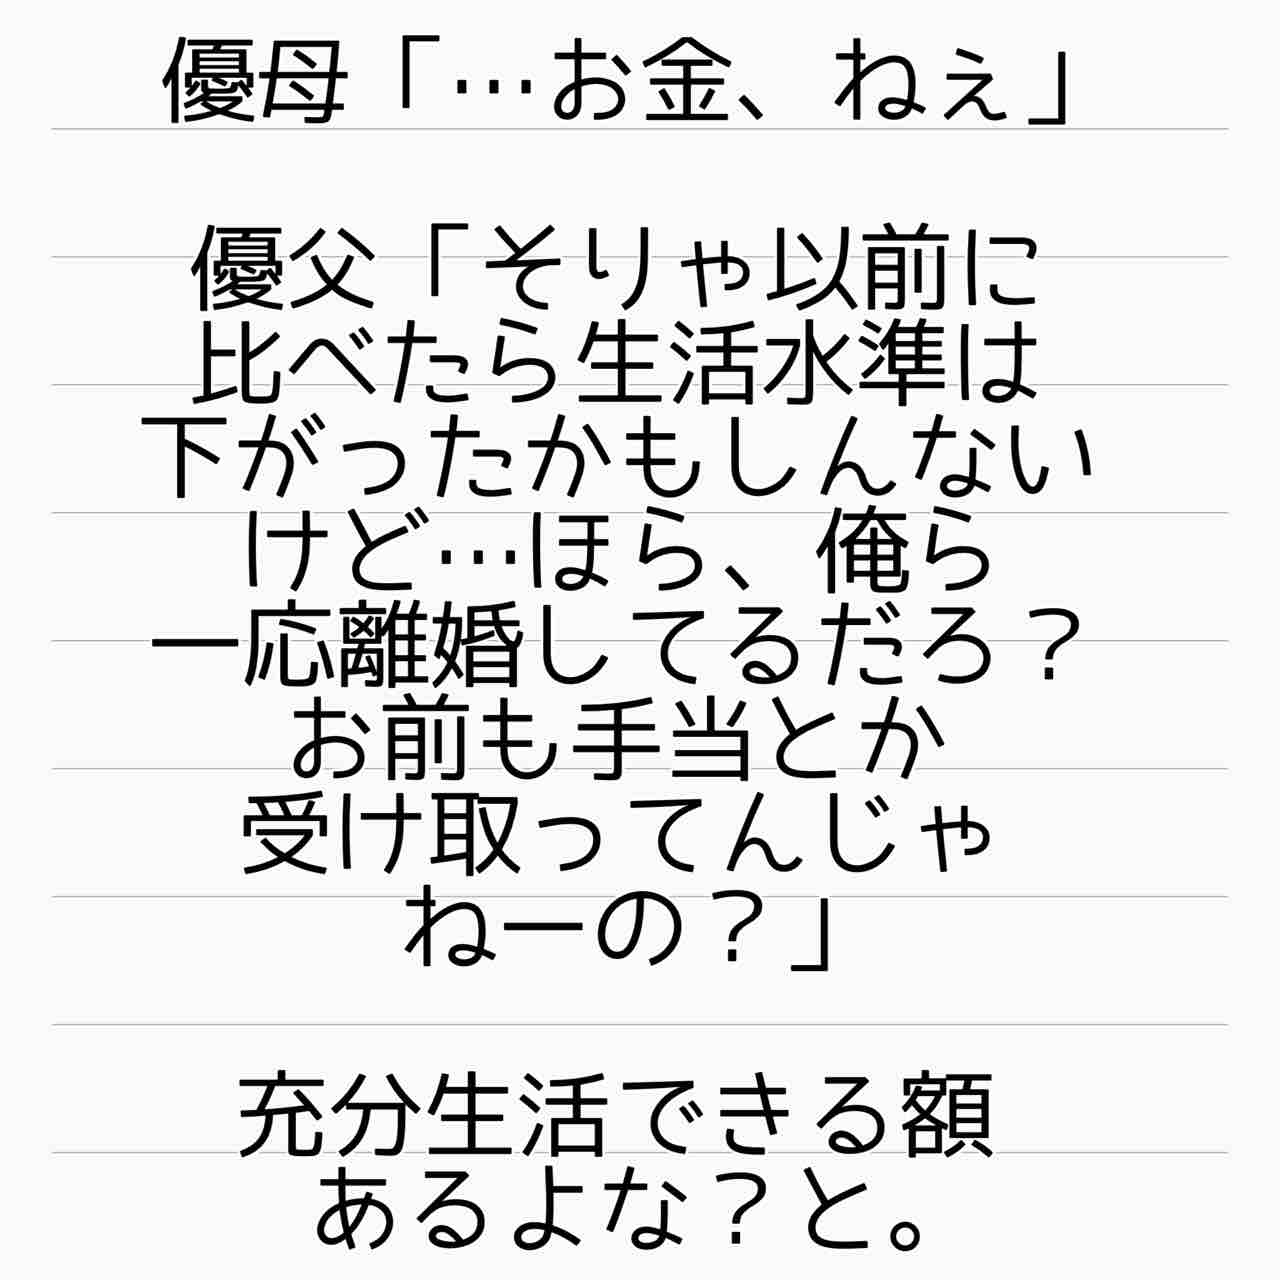 優母「…お金、ねぇ」
優父「そりゃ以前に
比べたら生活水準は
下がったかもしんない
けど…ほら、俺ら
一応離婚してるだろ？
お前も手当とか
受け取ってんじゃ
ねーの？」
充分生活できる額
あるよな？と。